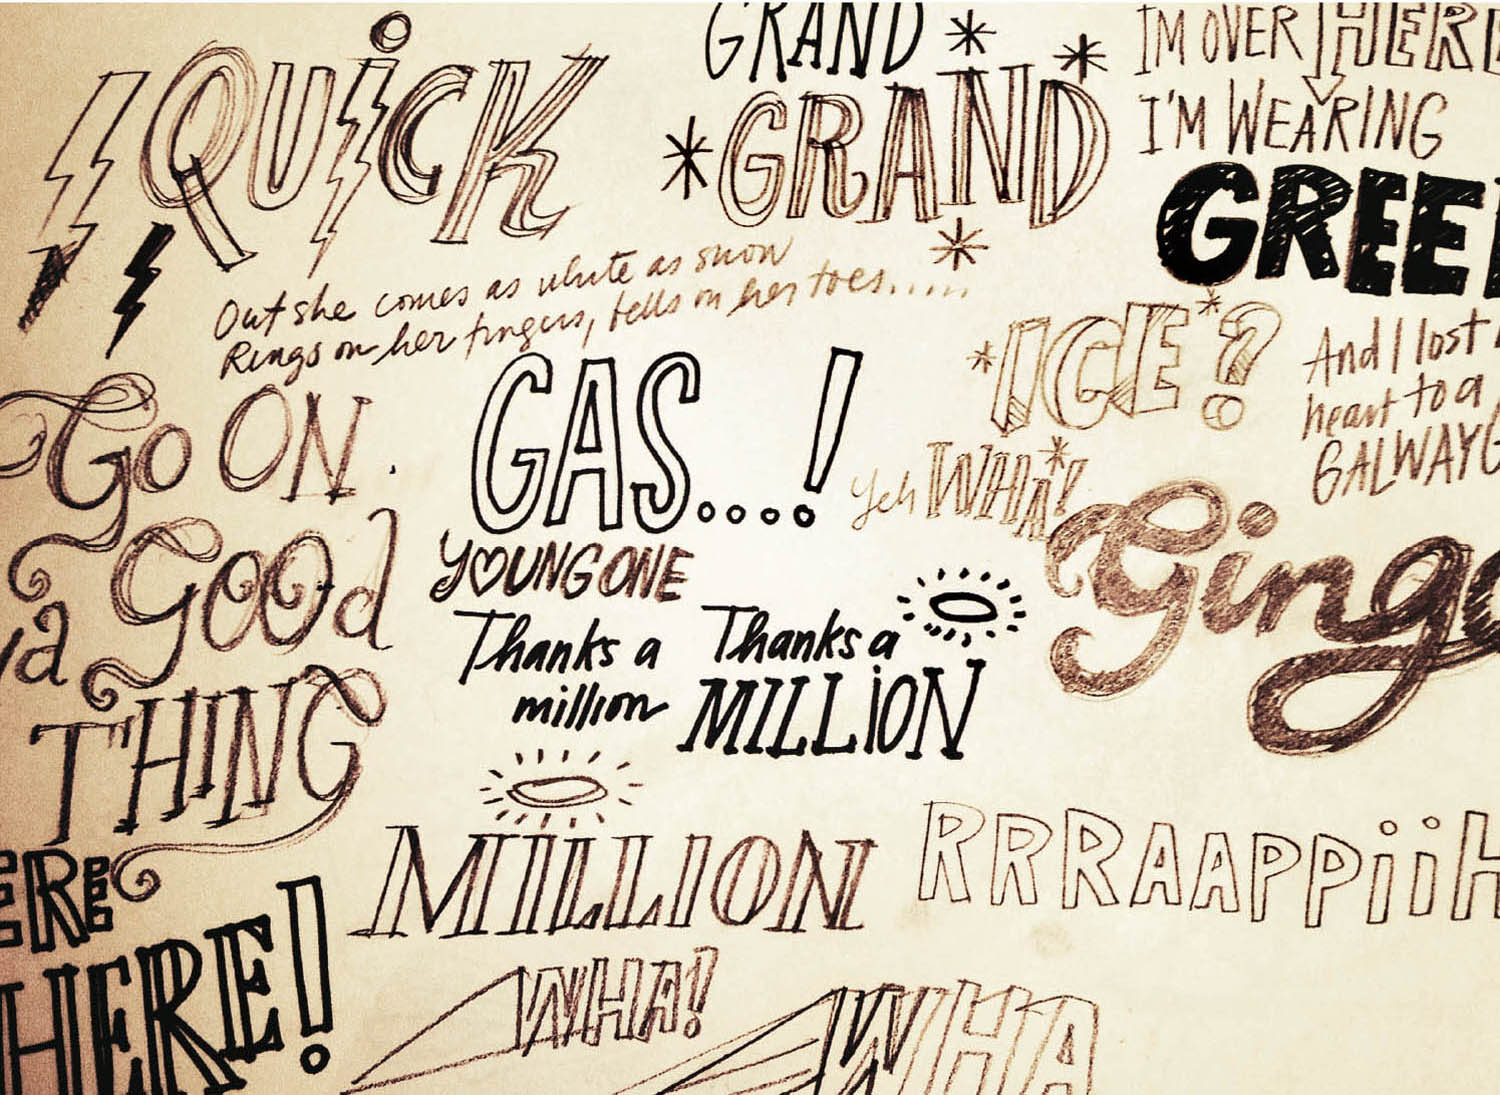 GRAND
I'M OVER HERE
QUiCK
GRAND
I'M WEARING
Out she comes as white as snow
Rings on her fingers, bells on her toes.....
ICE?
And I lost
heart to a
GALWAY
GO ON
GAS....!
Yeh WHA!
YOUNG ONE
ya GOOd
Thanks a
million
Thanks a
MiLLiON
THING
MiLLION
RRRAAPPiiH
HERE!
WHA!
WHA